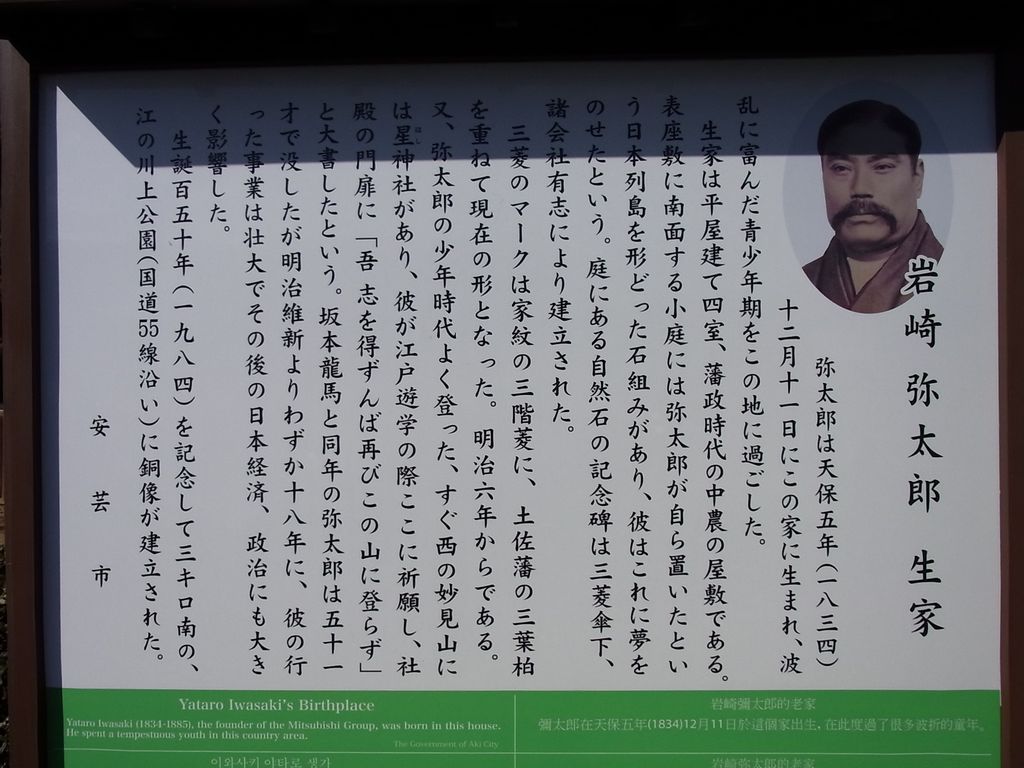 岩崎 弥太郎 生家
弥太郎は天保五年(一八三四)
十二月十一日にこの家に生まれ、波
乱に富んだ青少年期をこの地に過ごした。
生家は平屋建て四室、藩政時代の中農の屋敷である。
表座敷に南面する小庭には弥太郎が自ら置いたとい
う日本列島を形どった石組みがあり、彼はこれに夢を
のせたという。庭にある自然石の記念碑は三菱傘下、
諸会社有志により建立された。
三菱のマークは家紋の三階菱に、土佐藩の三葉柏
を重ねて現在の形となった。明治六年からである。
又、弥太郎の少年時代よく登った、すぐ西の妙見山に
は星神社があり、彼が江戸遊学の際ここに祈願し、社
殿の門扉に「吾 志を得ずんば再びこの山に登らず」
と大書したという。坂本龍馬と同年の弥太郎は五十一
才で没したが明治維新よりわずか十八年に、彼の行
った事業は壮大でその後の日本経済、政治にも大き
く影響した。
生誕百五十年(一九八四)を記念して三キロ南の、
江の川上公園(国道55線沿い)に銅像が建立された。
安芸市
Yataro Iwasaki's Birthplace
Yataro Iwasaki (1834-1885), the founder of the Mitsubishi Group, was born in this house.
He spent a tempestuous youth in this country area.
The Government of Aki City
岩崎彌太郎的老家
彌太郎在天保五年(1834)12月11日於這個家出生, 在此度過了很多波折的童年。
이와사키 야타로 생가
岩崎弥太郎的老家